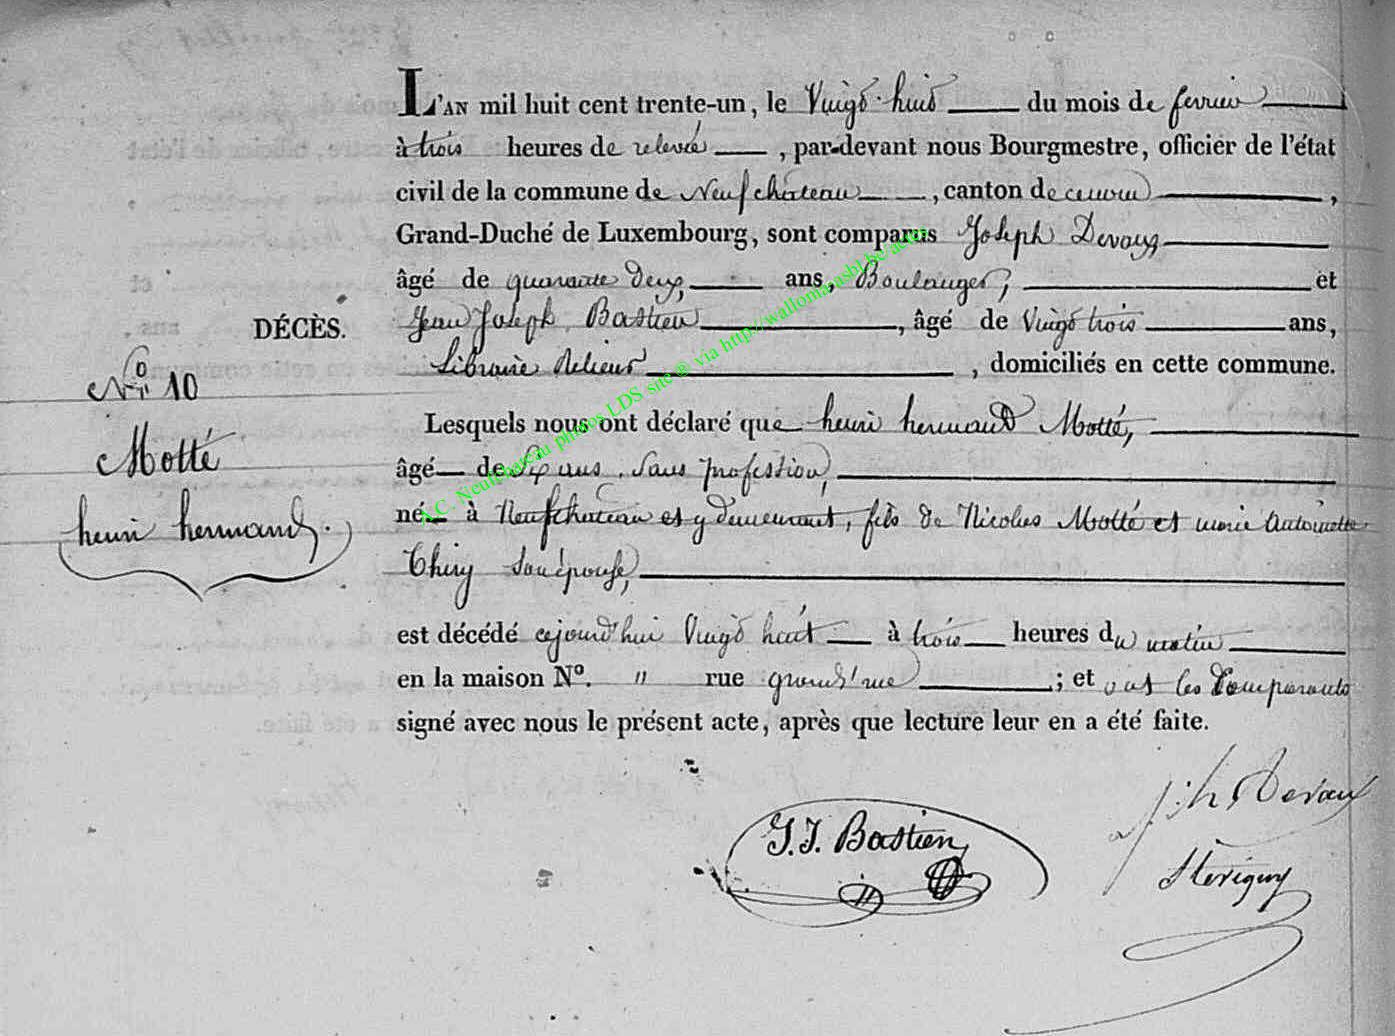 L'AN mil huit cent trente-un, le Vingt huit du mois de fevrier
à trois heures de relevée, par-devant nous Bourgmestre, officier de l'état
civil de la commune de Neufchateau, canton de
Grand-Duché de Luxembourg, sont comparus Joseph Devaux
âgé de quarante deux, ans, Boulanger, et
DÉCÈS.
Jean Joseph Bastien, âgé de Vingt trois ans,
Libraire Relieur, domiciliés en cette commune.
No. 10
Lesquels nous ont déclaré que henri hermand Motté,
Motté
âgé de Six ans, Sans profession,
henri hermand.
né à Neufchateau et y demeurant, fils de Nicolas Motté et marie Antoinette
Thiry Son épouse,
est décédé cejourd'hui Vingt huit à trois heures du matin
en la maison No. " rue grand'rue; et ont les Comparants
signé avec nous le présent acte, après que lecture leur en a été faite.
J. J. Bastien
Jph Devaux
A.C. Neufchateau photos LDS site @ via http://wallonia-asbl.be/actes